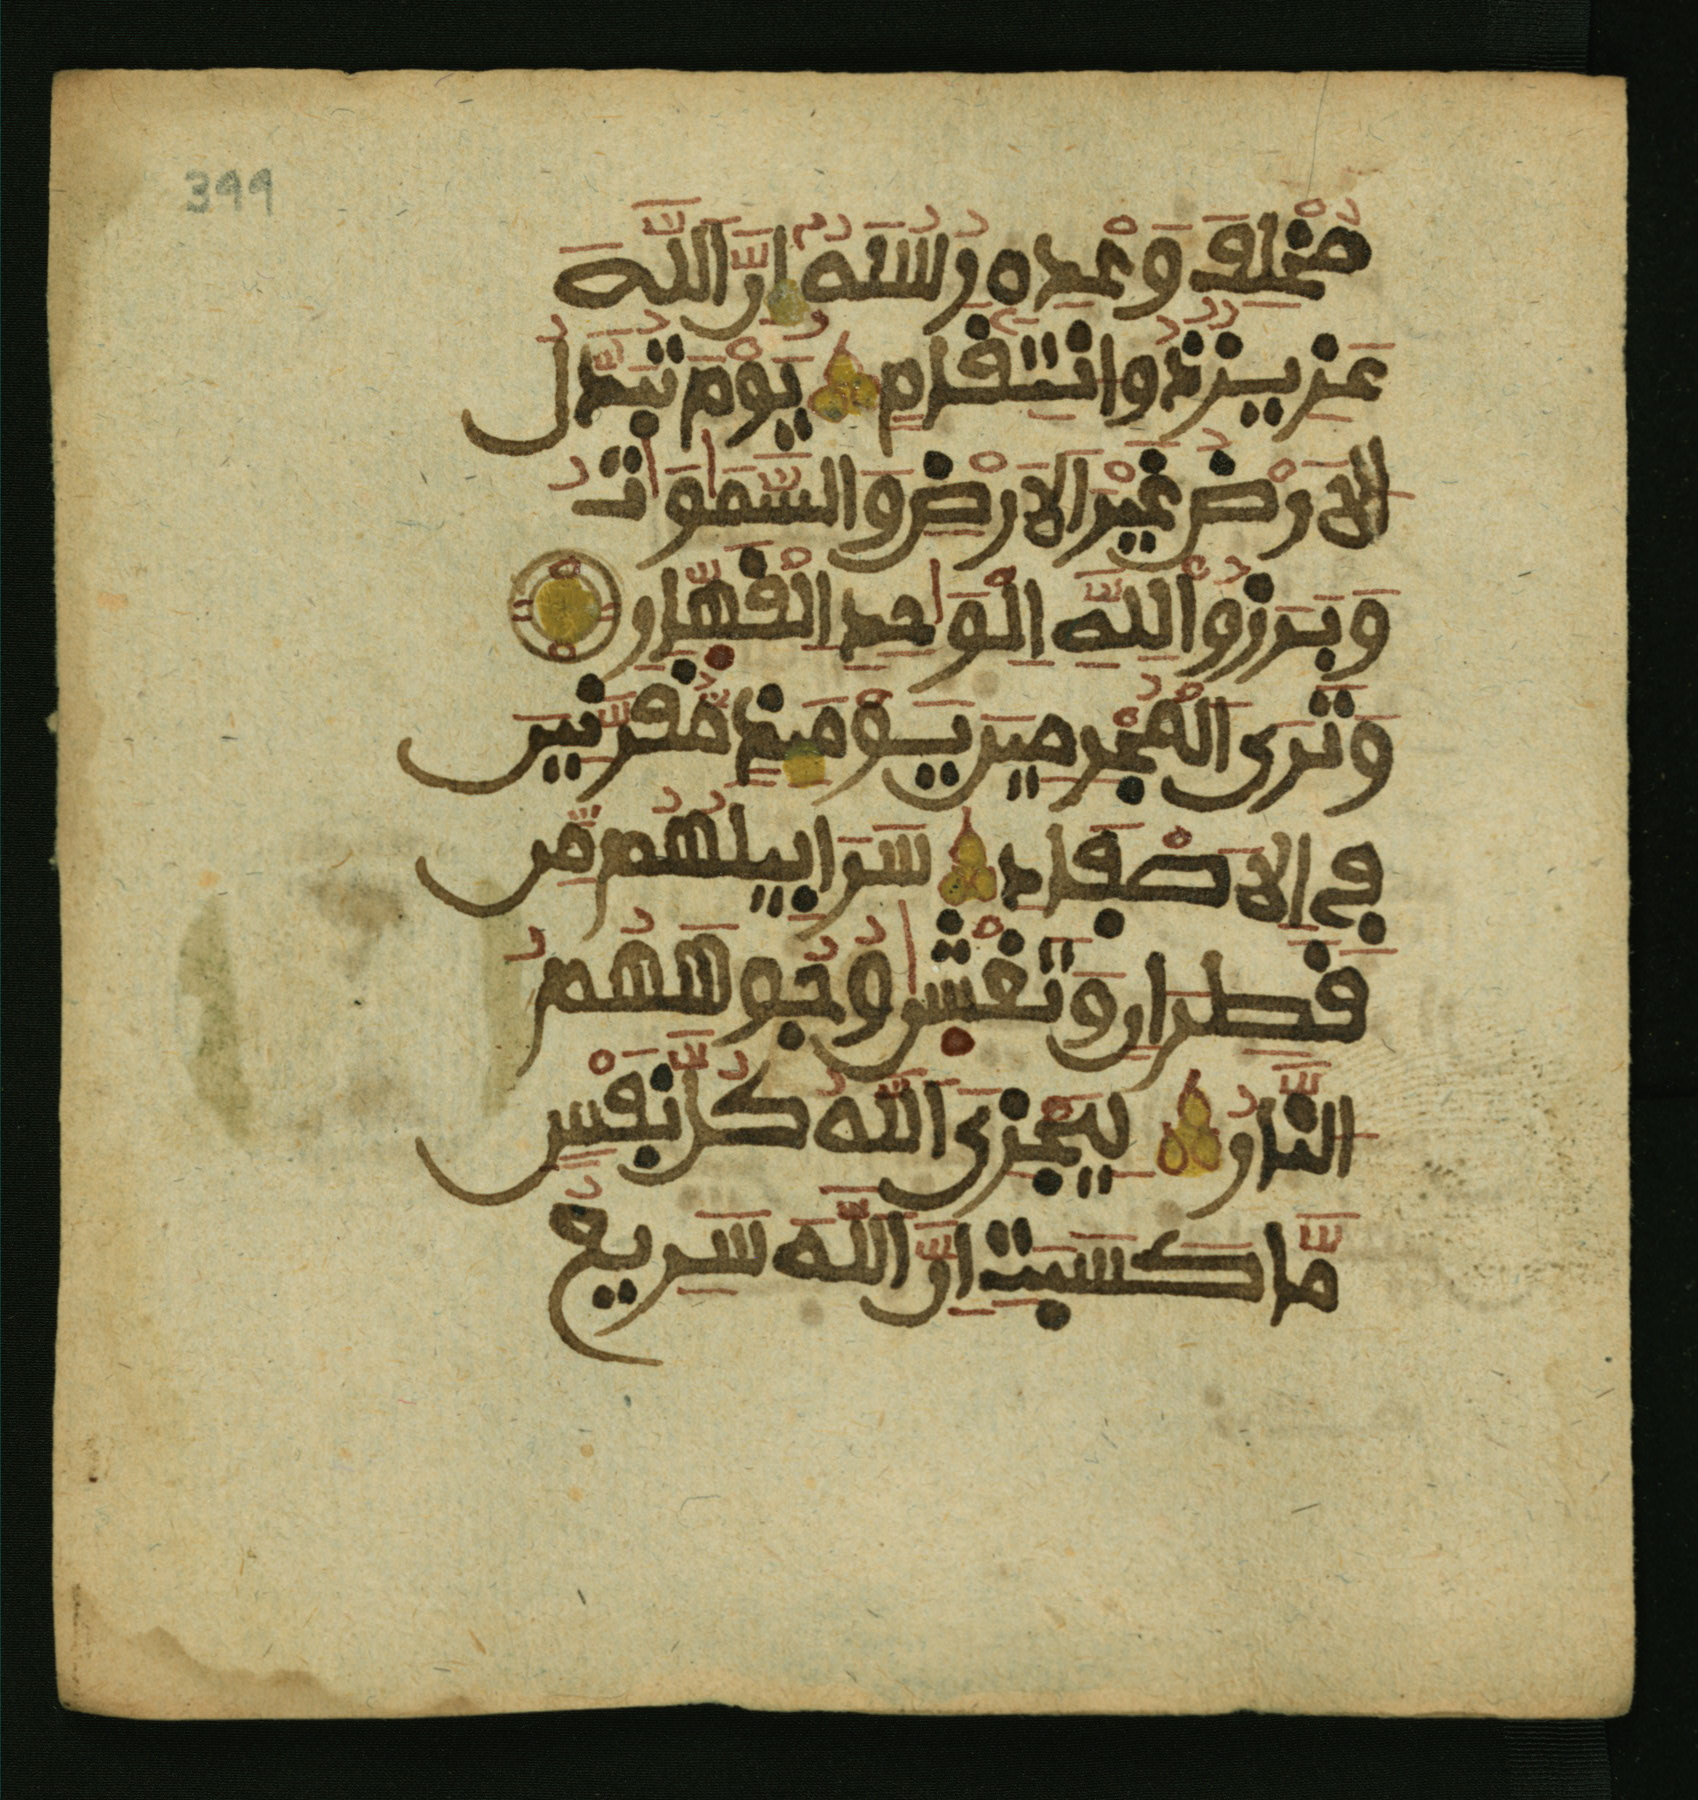 399
مُخْلِفَ وَعْدِهِ رُسُلَهُ إِنَّ اللَّهَ
عَزِيزٌ ذُو انتِقَامٍ يَوْمَ تُبَدَّلُ
الَارْضُ غَيْرَ الَارْضِ وَالسَّمَٰوَٰتُ
وَبَرَزُوا لِلَّهِ الْوَٰحِدِ الْقَهَّارِ
وَتَرَى الْمُجْرِمِينَ يَوْمَئِذٍ مُّقَرَّنِينَ
فِي الَاصْفَادِ سَرَابِيلُهُم مِّن
قَطِرَانٍ وَتَغْشَىٰ وُجُوهَهُمُ
النَّارُ لِيَجْزِيَ اللَّهُ كُلَّ نَفْسٍ
مَّا كَسَبَتِ انَّ اللَّهَ سَرِيعُ